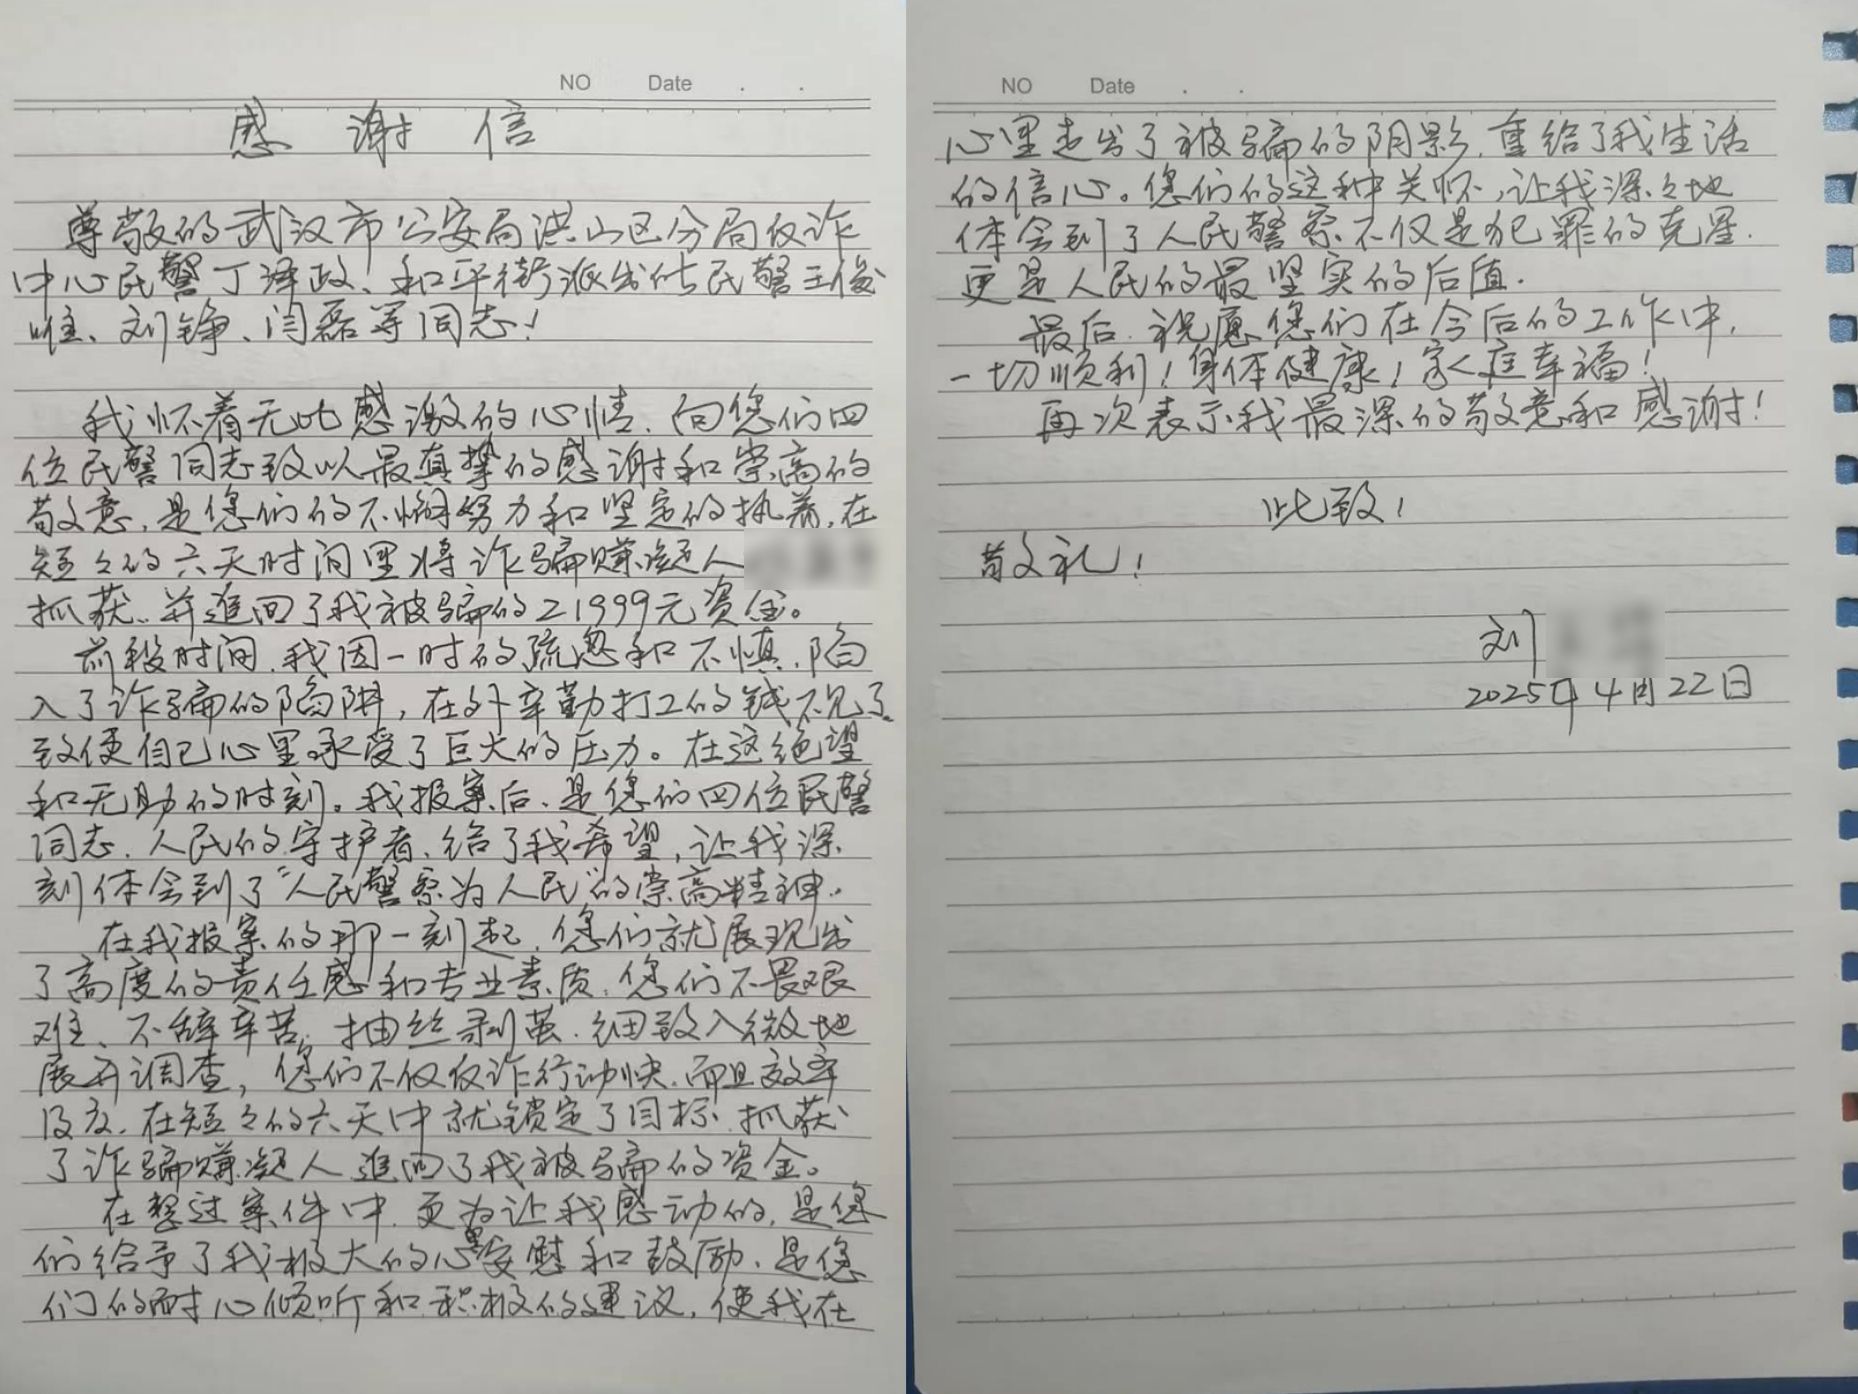 NO Date . .
感谢信
尊敬的武汉市公安局洪山区分局反诈
中心民警丁泽政、和平街派出所民警王俊
唯、刘铮、闫磊等同志！
我怀着无比感激的心情，向您们四
位民警同志致以最真挚的感谢和崇高的
敬意，是您们的不懈努力和坚定的执着，在
短々的六天时间里将诈骗嫌疑人
抓获，并追回了我被骗的21999元资金。
前段时间，我因一时的疏忽和不慎，陷
入了诈骗的陷阱，在外辛勤打工的钱不见了。
致使自己心里承受了巨大的压力。在这绝望
和无助的时刻。我报案后、是您们四位民警
同志、人民的守护者、给了我希望，让我深
刻体会到了“人民警察为人民”的崇高精神。
在我报案的那一刻起，您们就展现出
了高度的责任感和专业素质，您们不畏艰
难、不辞辛苦，抽丝剥茧，细致入微地
展开调查，您们不仅反诈行动快，而且效率
及高，在短々的六天中就锁定了目标，抓获
了诈骗嫌疑人追回了我被骗的资金。
在整过案件中，更为让我感动的，是您
们给予了我极大的心里安慰和鼓励、是您
们的耐心倾听和积极的建议，使我在
NO Date . .
心里走出了被骗的阴影，重给了我生活
的信心。您们的这种关怀，让我深々地
体会到了人民警察不仅是犯罪的克星，
更是人民的最坚实的后值．
最后，祝愿您们在今后的工作中，
一切顺利！身体健康！家庭幸福！
再次表示我最深的敬意和感谢！
此致！
敬礼！
刘
2025年4月22日